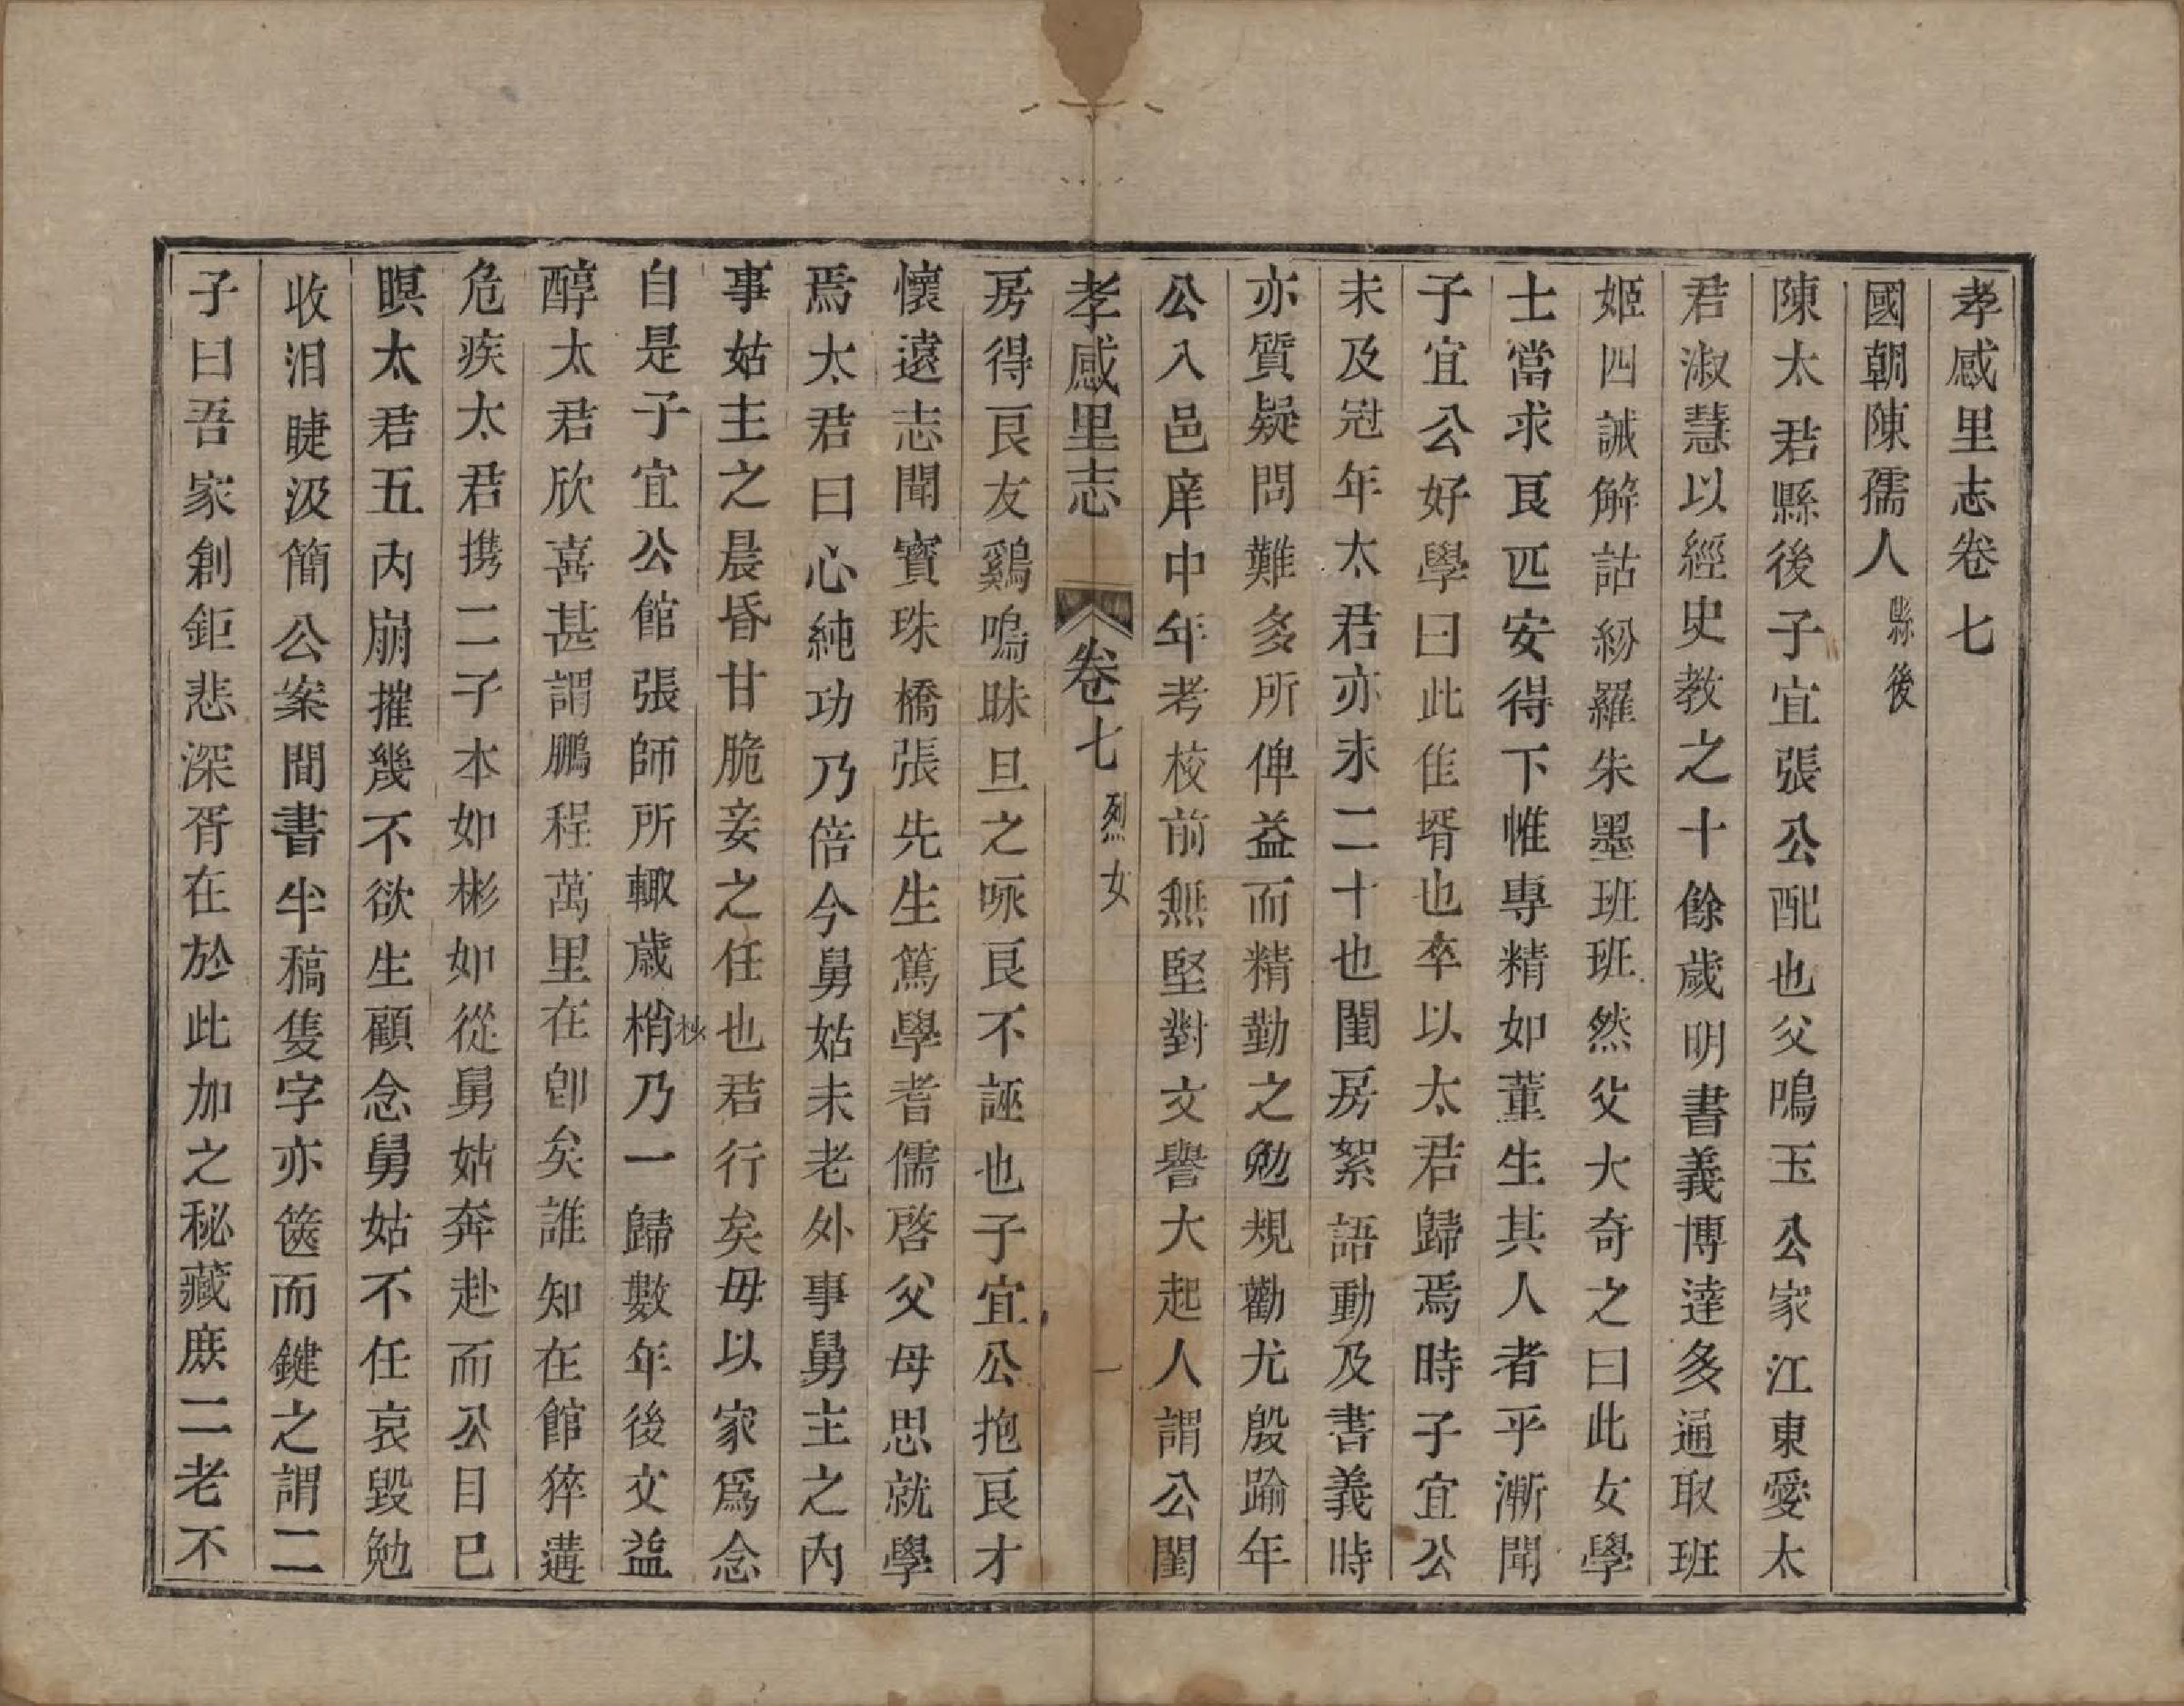 孝感里志卷七
國朝陳孺人縣後
陳太君縣後子宜張公配也父鳴玉公家江東愛太
君淑慧以經史教之十餘歲明書義博達多通取班
姬四誡解詁紛羅朱墨班班然父大奇之曰此女學
士當求良匹安得下帷專精如董生其人者乎漸聞
子宜公好學曰此佳壻也卒以太君歸焉時子宜公
未及冠年太君亦未二十也閨房絮語動及書義時
亦質疑問難多所俾益而精勤之勉規勸尤殷踰年
公入邑庠中年考校前無堅對文譽大起人謂公閨
孝感里志 卷七 烈女 一
房得良友鷄鳴昧旦之咏良不誣也子宜公抱良才
懷遠志聞寳珠橋張先生篤學耆儒啓父母思就學
焉太君曰心純功乃倍今舅姑未老外事舅主之內
事姑主之晨昏甘脆妾之任也君行矣毋以家爲念
自是子宜公館張師所輙歲梢乃一歸數年後文益
秋
醇太君欣喜甚謂鵬程萬里在卽矣誰知在館猝遘
危疾太君携二子本如彬如從舅姑奔赴而公目已
瞑太君五內崩摧幾不欲生顧念舅姑不任哀毀勉
收泪睫汲簡公案間書半稿隻字亦篋而鍵之謂二
子曰吾家創鉅悲深胥在於此加之秘藏庶二老不